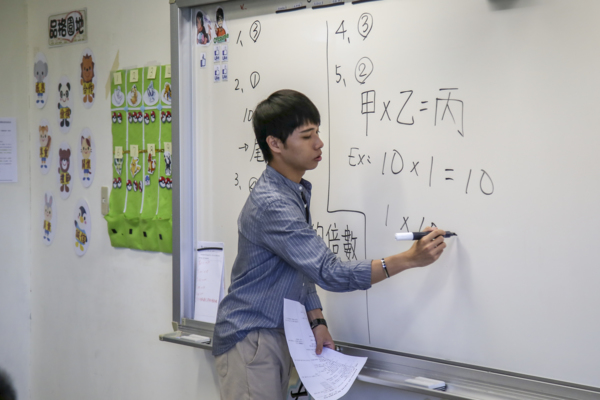 品格園地
1、③
2、①
10
→尾
3、
的倍數
4、③
5、②
甲×乙=丙
Ex: 10×1=10
1×10